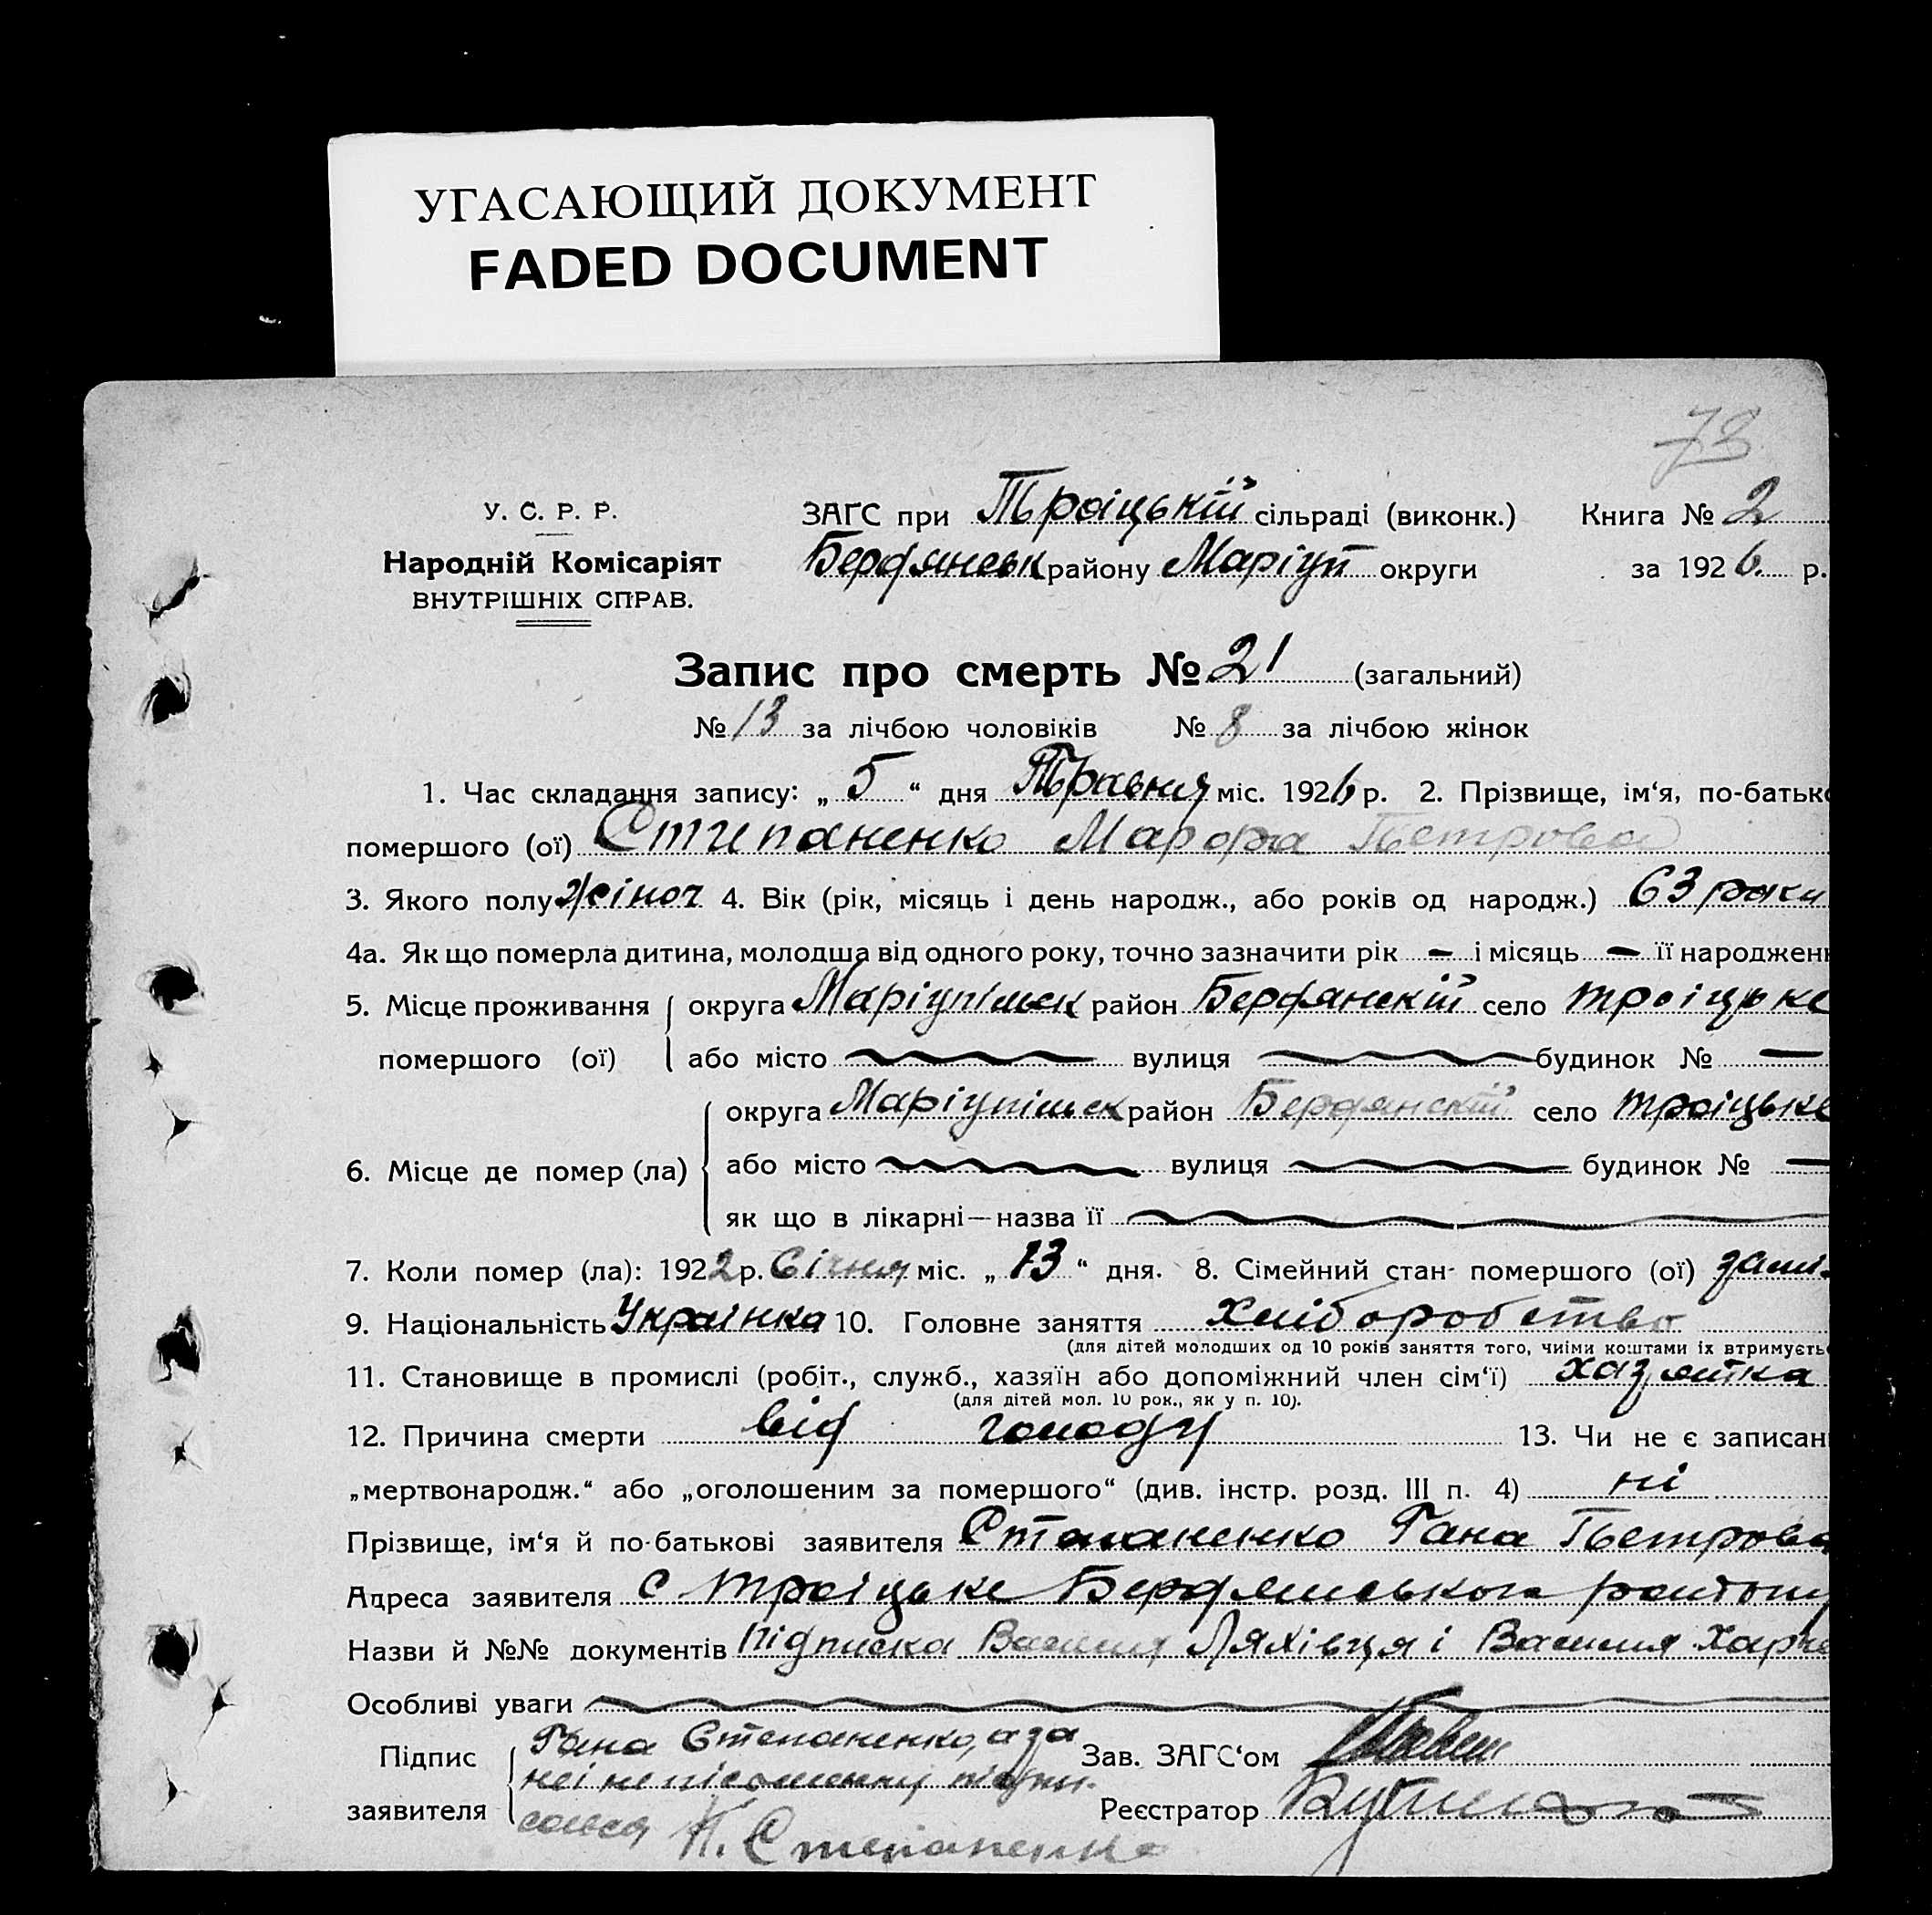 УГАСАЮЩИЙ ДОКУМЕНТ
FADED DOCUMENT
78
У. С. Р. Р.
Народній Комісаріят
ВНУТРІШНІХ СПРАВ.
ЗАГС при Троіцькій сільраді (виконк.) Книга № 2
Бердянськ району Маріуп округи за 1926. р.
Запис про смерть № 21 (загальний)
№ 13 за лічбою чоловіків № 8 за лічбою жінок
1. Час складання запису: „ 5 “ дня Травня міс. 1926 р. 2. Прізвище, ім‘я, по-батько
помершого (ої) Стипаненко Марфа Петрова
3. Якого полу жіноч 4. Вік (рік, місяць і день народж., або років од народж.) 63 роки
4а. Як що померла дитина, молодша від одного року, точно зазначити рік — і місяць — її народжен
5. Місце проживання округа Маріупільск район Бердянскій село троіцьке
помершого (ої) або місто вулиця будинок № —
6. Місце де помер (ла) округа Маріупільск район Бердянскій село троіцьке
або місто вулиця будинок № —
як що в лікарні—назва її
7. Коли помер (ла): 1922 р. Січня міс. „ 13 “ дня. 8. Сімейний стан помершого (ої) заміж
9. Національність Украінка 10. Головне заняття хліборобство
(для дітей молодших од 10 років заняття того, чиіми коштами їх втримуєть
11. Становище в промислі (робіт., служб., хазяїн або допоміжний член сім‘ї) хазяйка
(для дітей мол. 10 рок., як у п. 10).
12. Причина смерти від голоду 13. Чи не є записан
„мертвонародж.“ або „оголошеним за помершого“ (див. інстр. розд. III п. 4) ні
Прізвище, ім‘я й по-батькові заявителя Степаненко Гана Петрова
Адреса заявителя с троіцьке Бердянського району
Назви й №№ документів Підписка Василя Ляхівця і Василя Харче
Особливі уваги
Підпис заявителя Гана Степаненко, а за
неі неписьменну підпи-
сався П. Степаненко
Зав. ЗАГС‘ом
Реєстратор